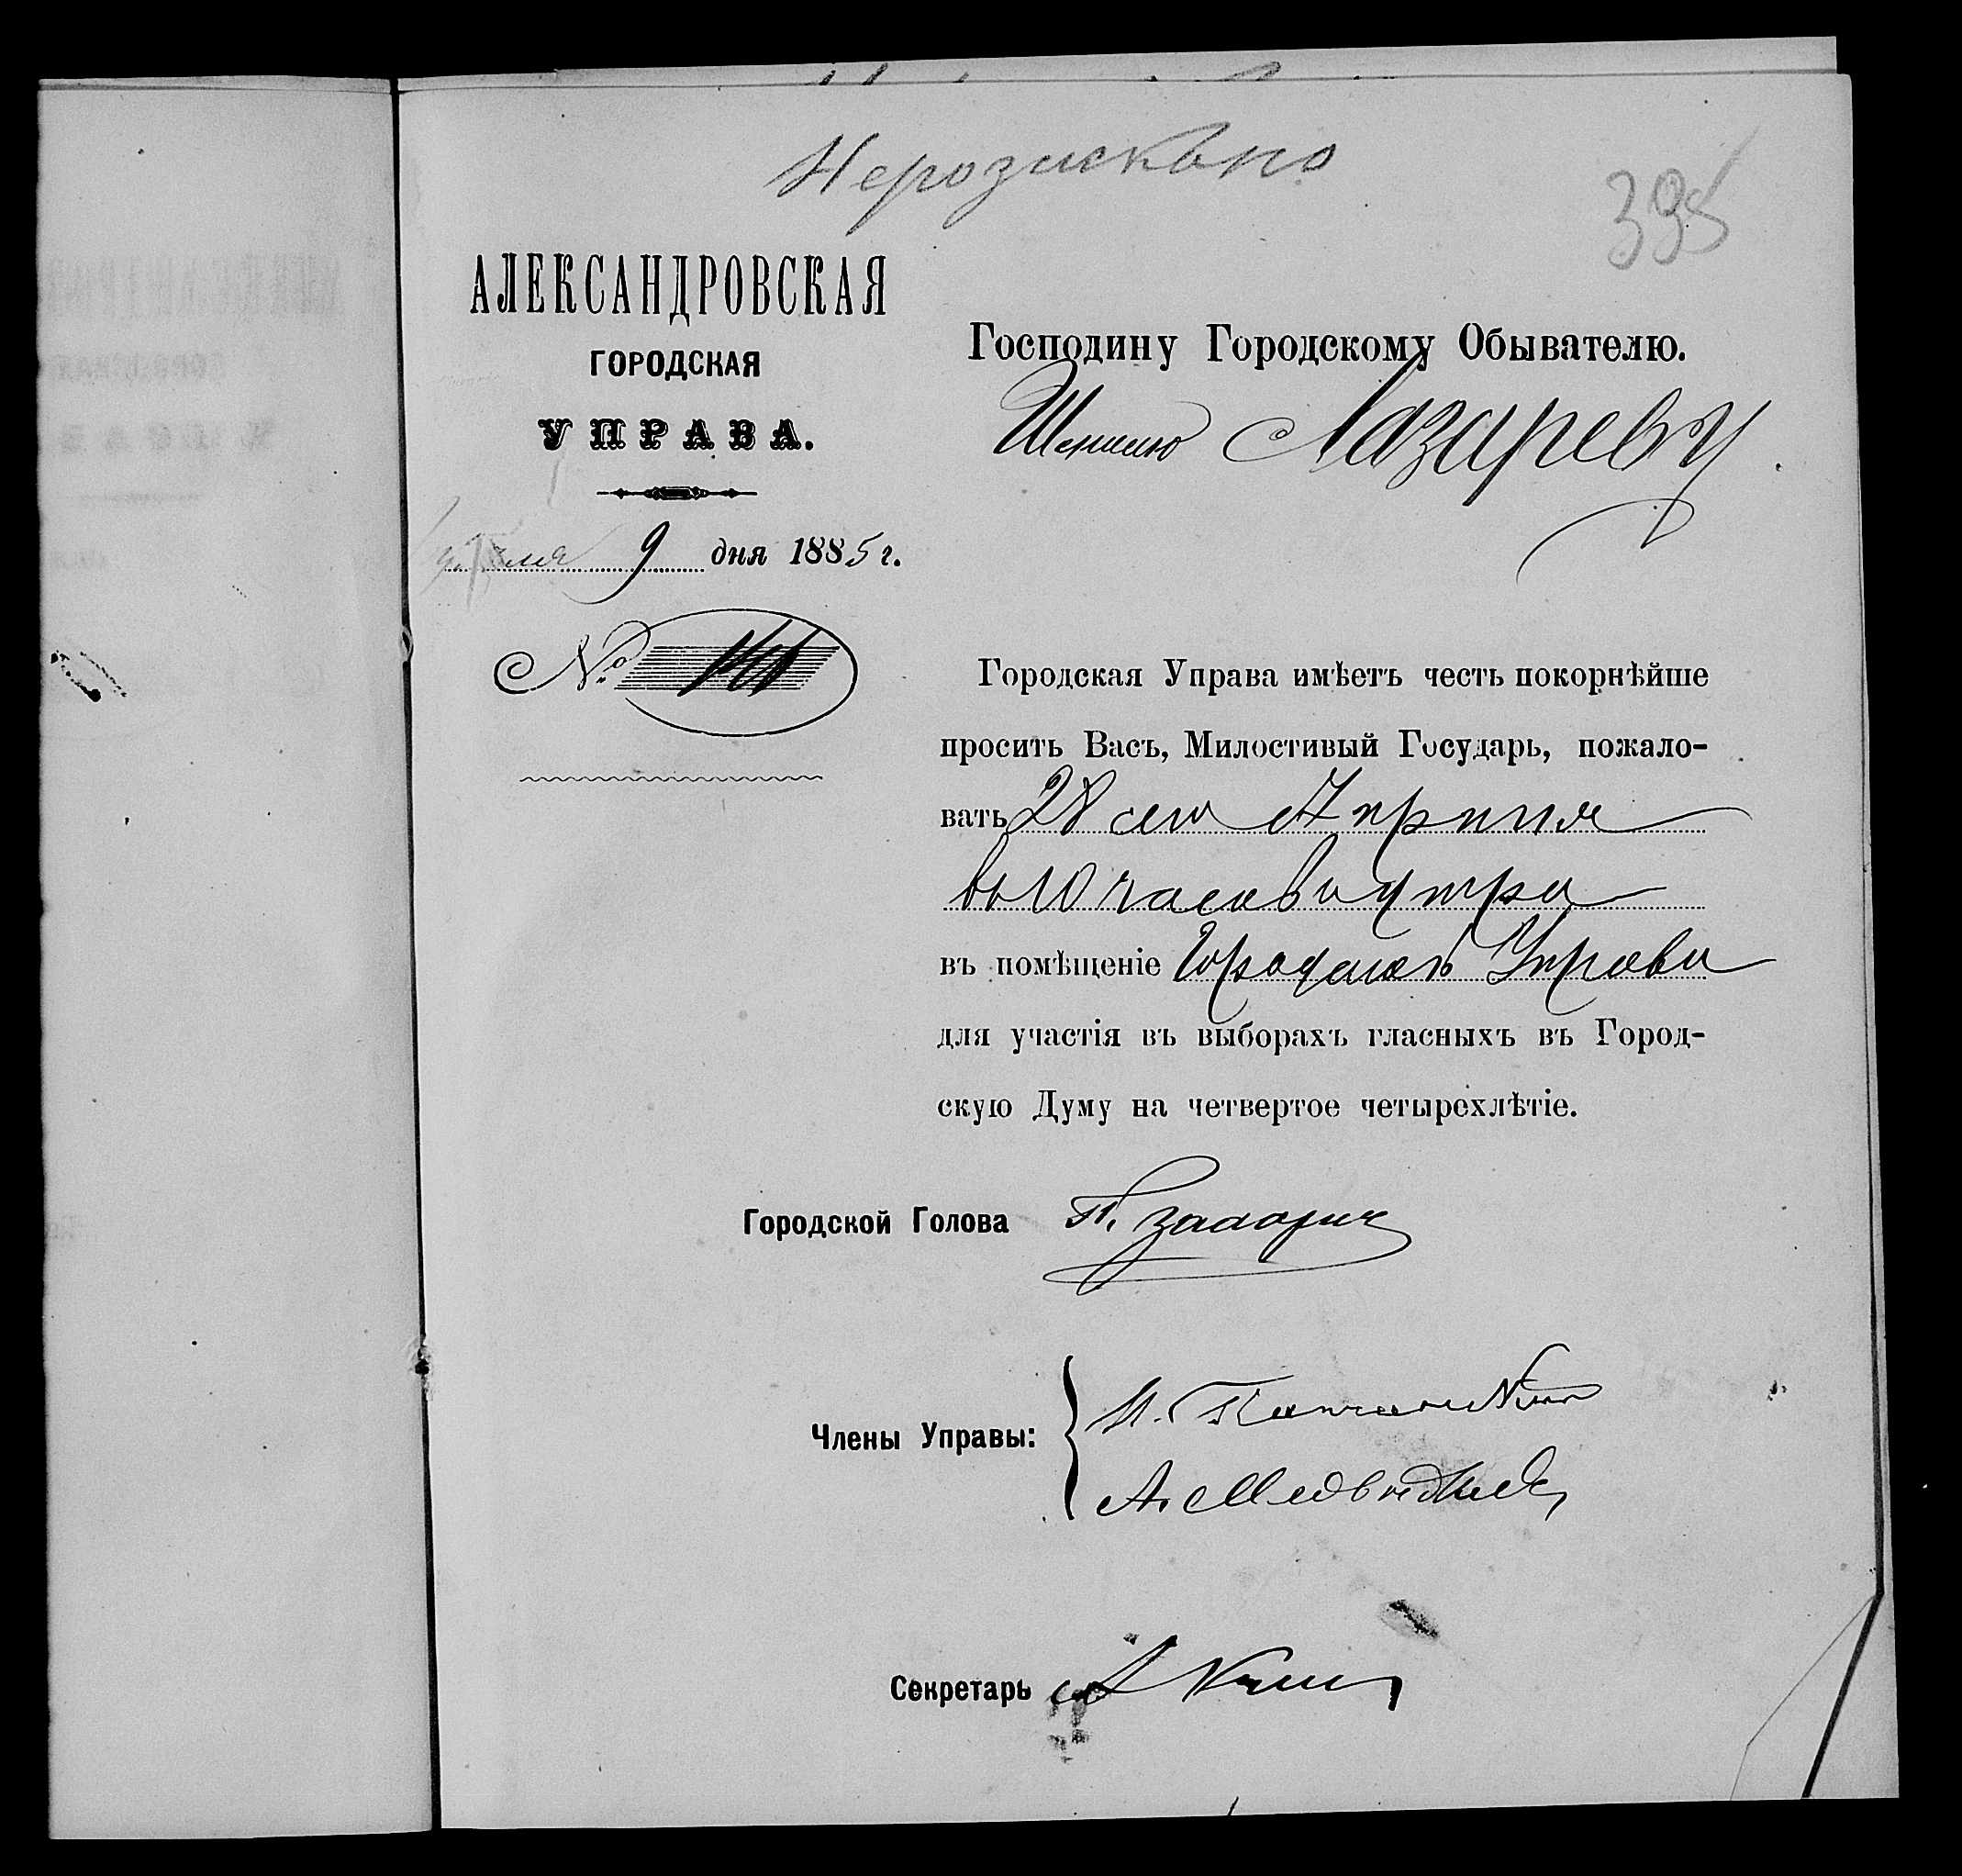 Нерозискано
395
АЛЕКСАНДРОВСКАЯ
ГОРОДСКАЯ
УПРАВА.
9 дня 1885 г.
№
Господину Городскому Обывателю.
Лазареву
Городская Управа имѣетъ честь покорнѣйше
просить Васъ, Милостивый Государь, пожало-
вать 28 сего Апрѣля
въ 10 часовъ утра
въ помѣщеніе Городской Управы
для участія въ выборахъ гласныхъ въ Город-
скую Думу на четвертое четырехлѣтіе.
Городской Голова
Члены Управы:
А. Медведик
Секретарь